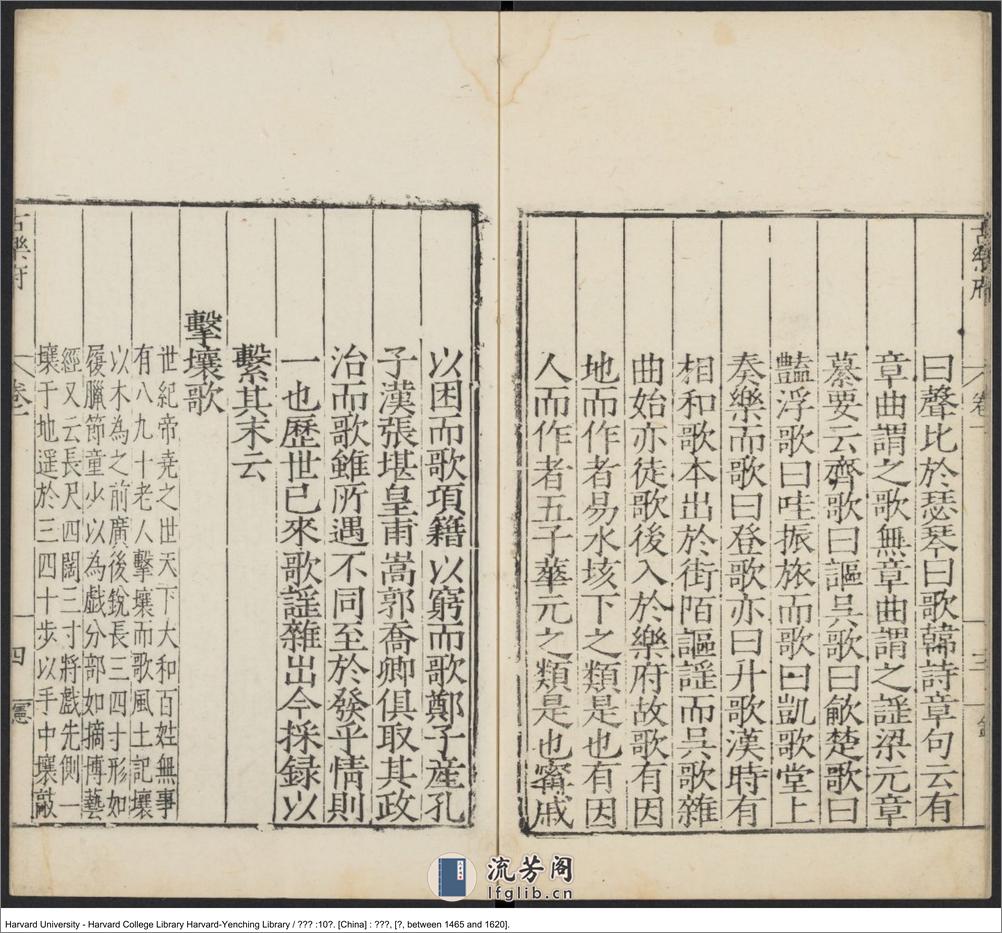 古樂府
卷一
三
曰聲比於瑟琴曰歌韓詩章句云有
章曲謂之歌無章曲謂之謡梁元章
纂要云齊歌曰謳吳歌曰歈楚歌曰
豔浮歌曰哇振旅而歌曰凱歌堂上
奏樂而歌曰登歌亦曰升歌漢時有
相和歌本出於街陌謳謡而吳歌雜
曲始亦徒歌後入於樂府故歌有因
地而作者易水垓下之類是也有因
人而作者五子華元之類是也甯戚
以困而歌項籍以窮而歌鄭子產孔
子漢張堪皇甫嵩郭喬卿俱取其政
治而歌雖所遇不同至於發乎情則
一也歷世已來歌謡雜出今採録以
繫其末云
擊壤歌
世紀帝堯之世天下大和百姓無事
有八九十老人擊壤而歌風土記壤
以木為之前廣後銳長三四寸形如
履臘節童少以為戲分部如摘博藝
經又云長尺四闊三寸將戲先側一
壤于地遥於三四十步以手中壤敲
古樂府
卷一
四
流芳阁
lfglib.cn
Harvard University - Harvard College Library Harvard-Yenching Library / ??? :10?. [China] : ???, [?, between 1465 and 1620].